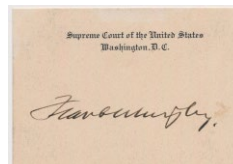 Supreme Court of the United States
Washington, D. C.
Frank Murphy.